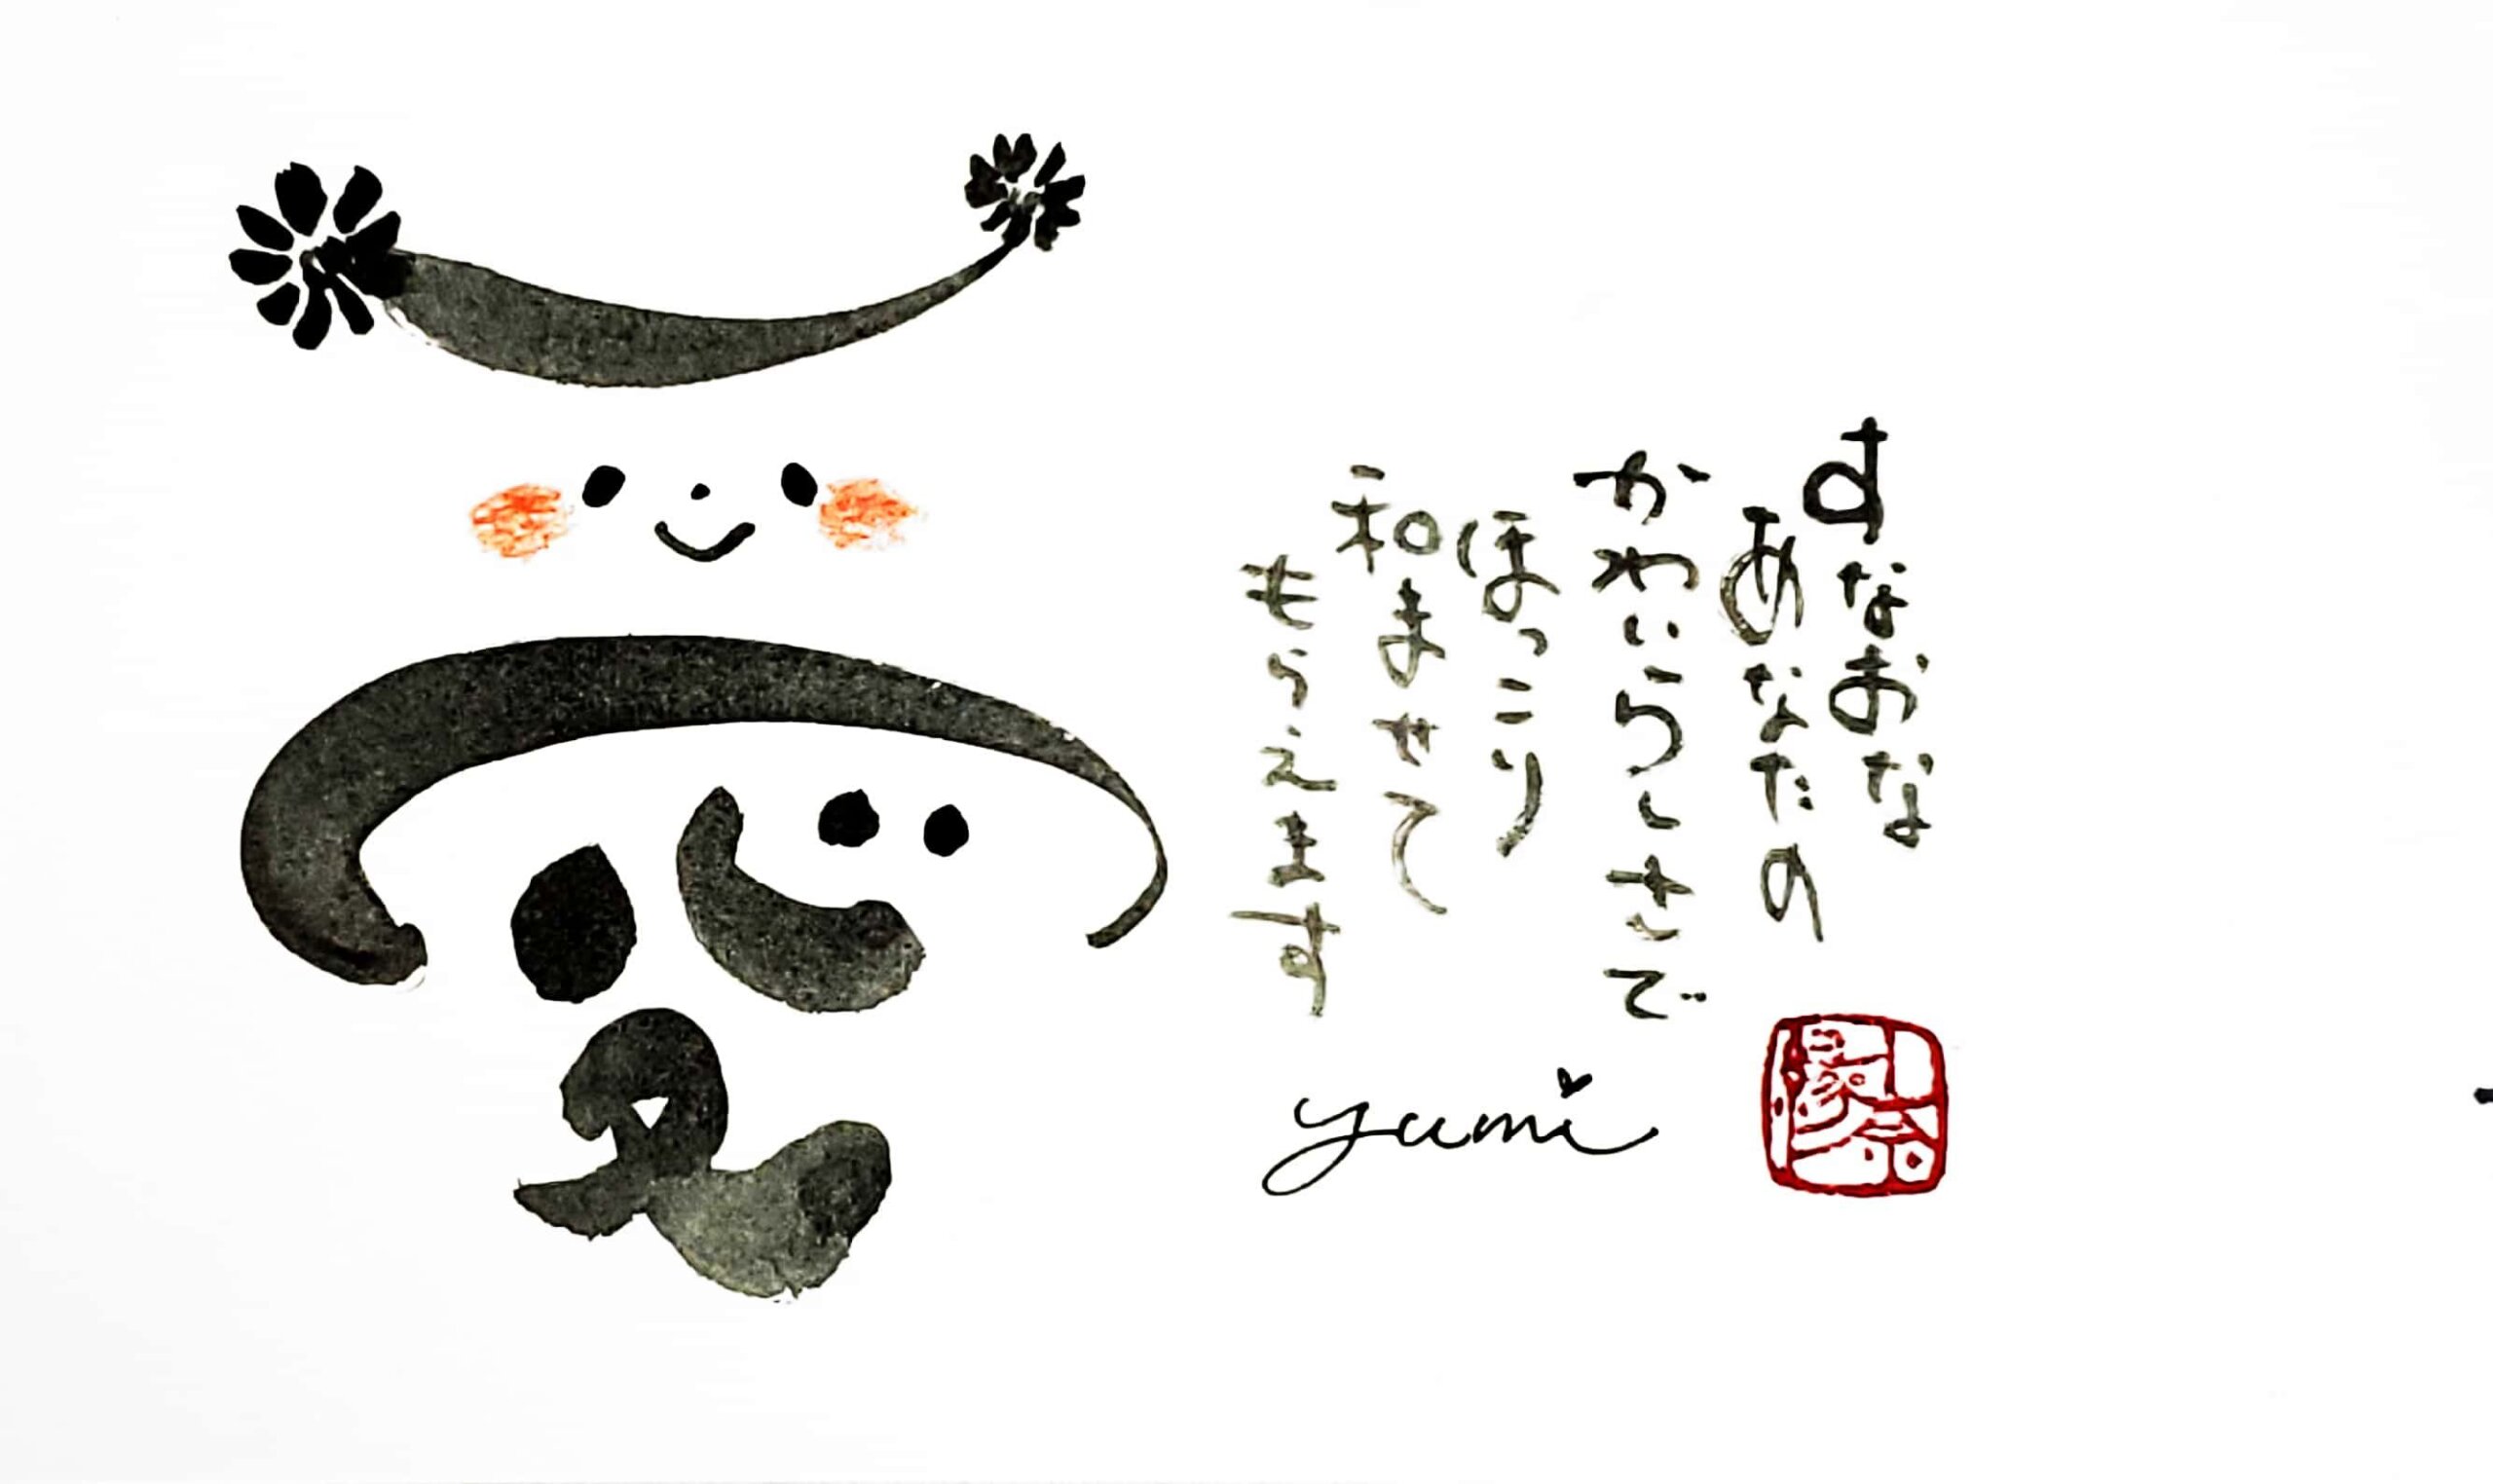 愛
すなおな
あなたの
かわいらしさで
ほっこり
和ませて
もらえます
yumi